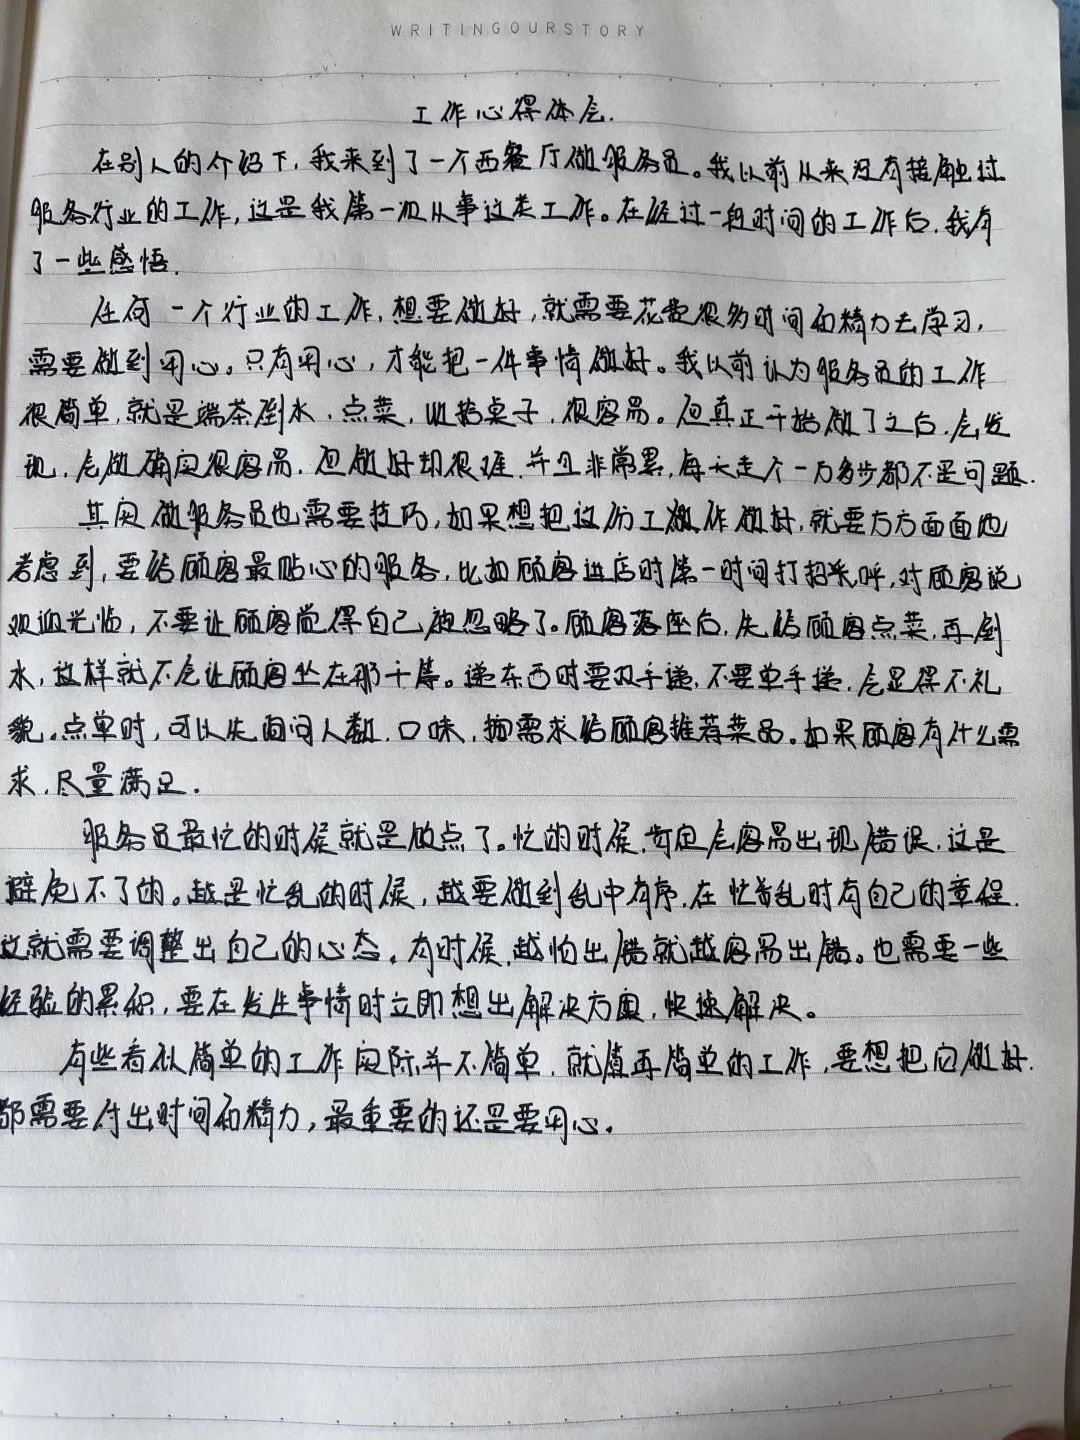 WRITINGOURSTORY
工作心得体会.
在别人的介绍下,我来到了一个西餐厅做服务员。我以前从来没有接触过
服务行业的工作,这是我第一次从事这类工作。在经过一段时间的工作后,我有
了一些感悟.
任何一个行业的工作,想要做好,就需要花费很多时间和精力去学习,
需要做到用心。只有用心,才能把一件事情做好。我以前认为服务员的工作
很简单,就是端茶倒水、点菜,收拾桌子,很容易。但真正开始做了之后,会发
现,会做确实很容易,但做好却很难,并且非常累,每天走个一万多步都不是问题.
其实做服务员也需要技巧,如果想把这份工作做好,就要方方面面地
考虑到,要给顾客最贴心的服务,比如顾客进店时第一时间打招呼,对顾客说
欢迎光临,不要让顾客觉得自己被忽略了。顾客落座后,先给顾客点菜,再倒
水,这样就不会让顾客坐在那干等。递东西时要双手递,不要单手递,会显得不礼
貌。点单时,可以先询问人数、口味,按需求给顾客推荐菜品。如果顾客有什么需
求,尽量满足.
服务员最忙的时候就是饭点了。忙的时候,肯定会容易出现错误,这是
避免不了的。越是忙乱的时候,越要做到乱中有序,在忙乱时有自己的章程.
这就需要调整出自己的心态。有时候,越怕出错就越容易出错。也需要一些
经验的累积,要在发生事情时立即想出解决方案,快速解决。
有些看似简单的工作实际并不简单,就算再简单的工作,要想把它做好.
都需要付出时间和精力,最重要的还是要用心。